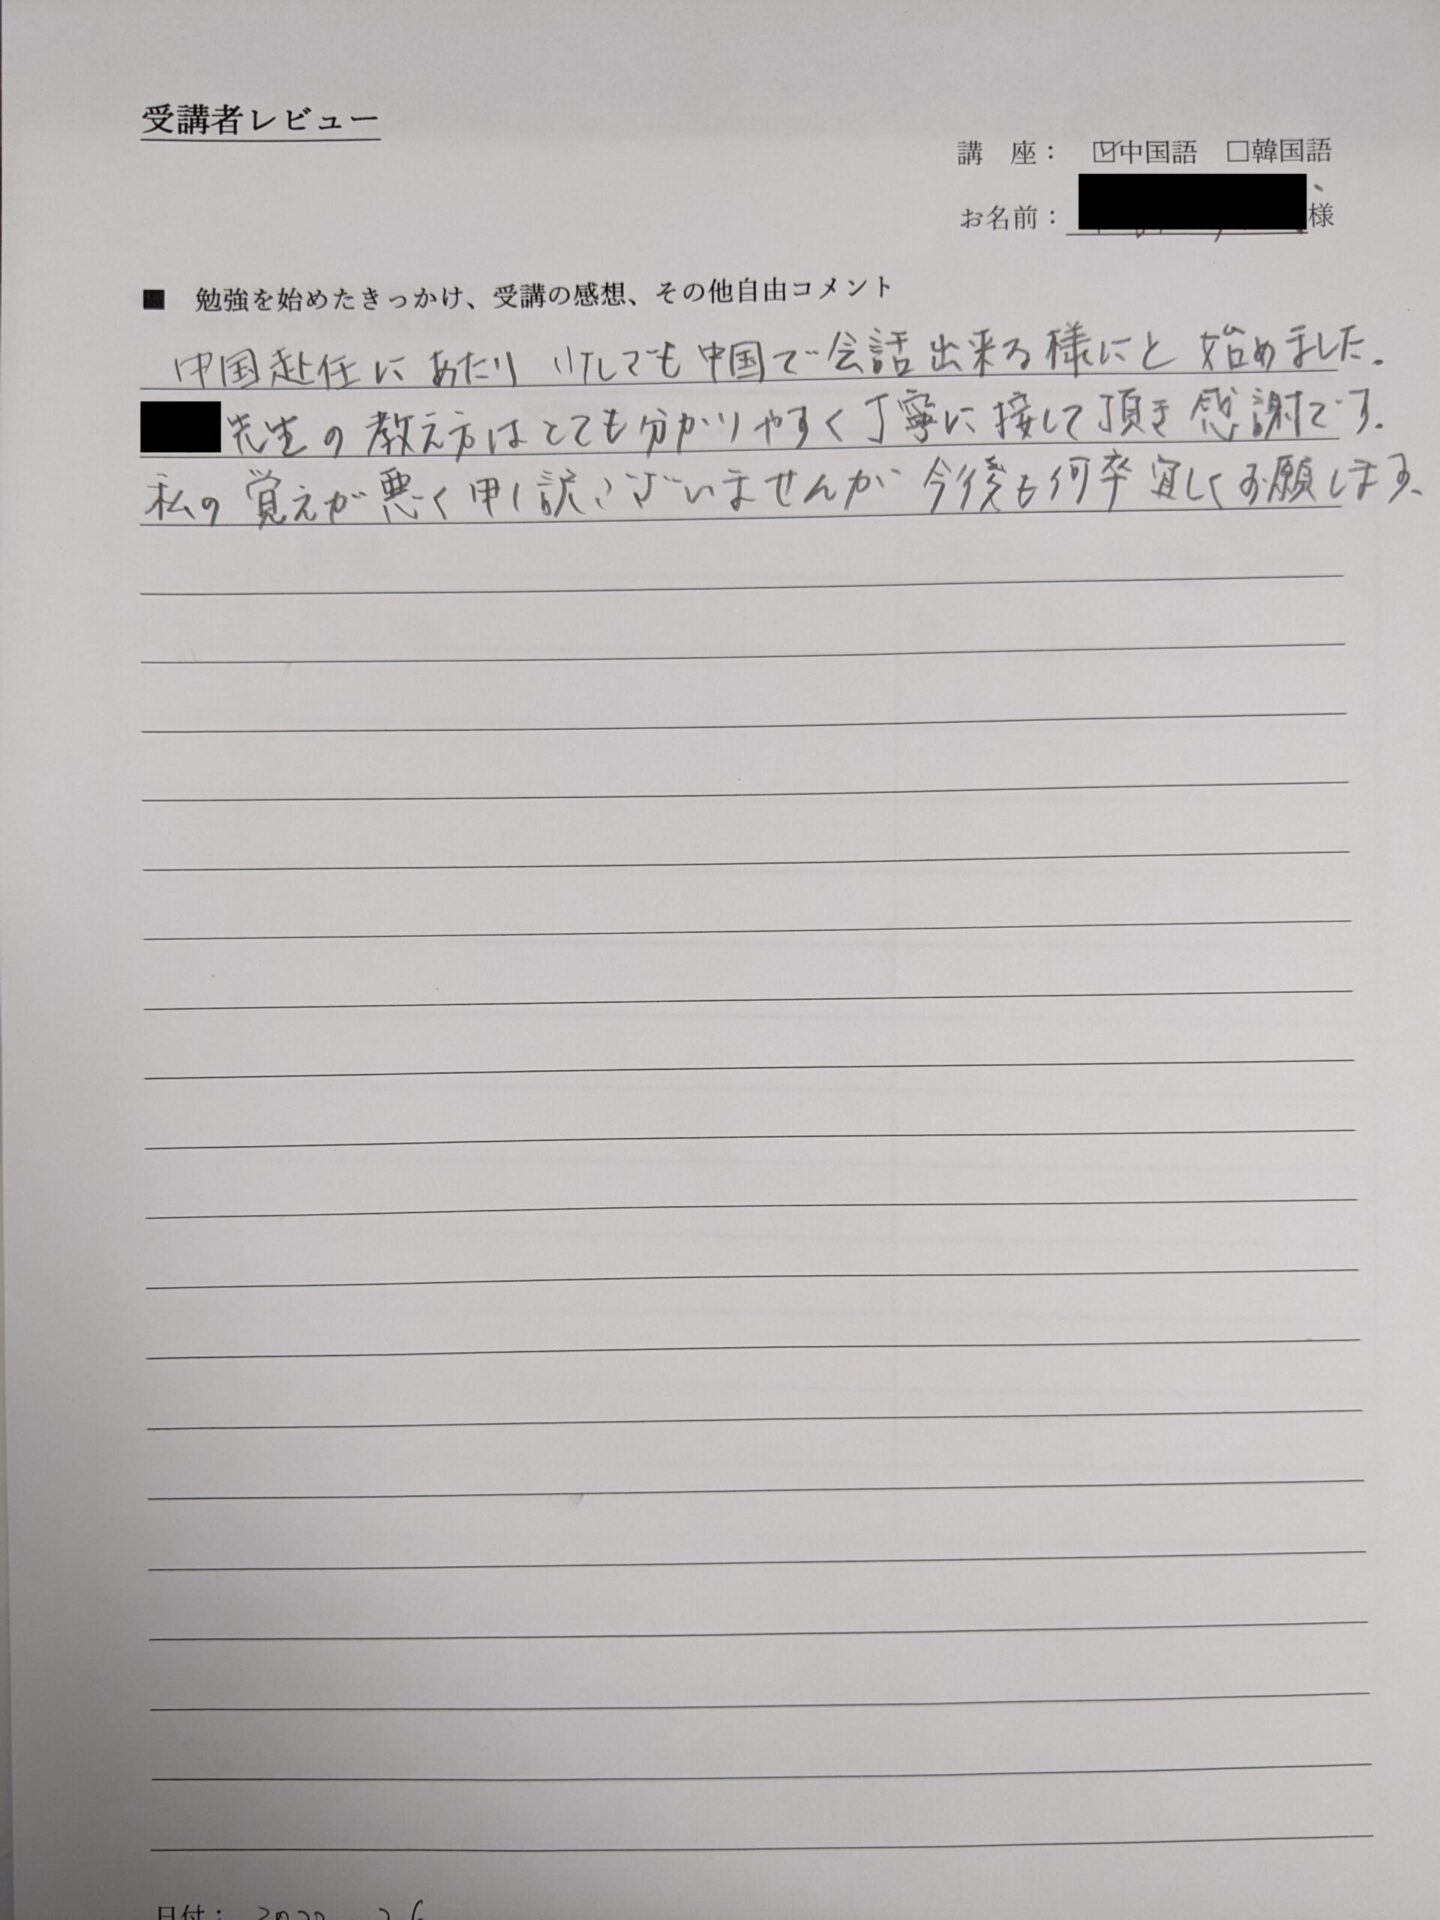 受講者レビュー
講 座： ☑中国語 □韓国語
お名前： 様
■ 勉強を始めたきっかけ、受講の感想、その他自由コメント
中国赴任にあたり 少しでも中国で会話出来る様にと 始めました。
先生の教え方はとても分かりやすく丁寧に接して頂き感謝です。
私の覚えが悪く申し訳ございませんが 今後も何卒宜しくお願します、
日付：